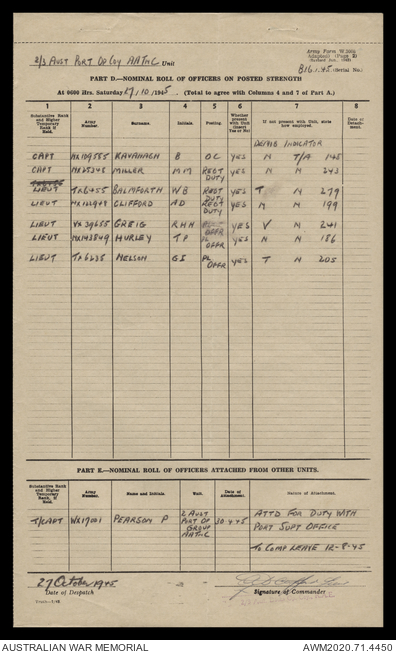 Army Form W.3008
Adapted (Page 2)
2/3 AUST PORT OP COY AATNC Unit
816/45 (Serial No.)
PART D.—NOMINAL ROLL OF OFFICERS ON POSTED STRENGTH
At 0600 Hrs. Saturday 27/10/1945. (Total to agree with Columns 4 and 7 of Part A.)
1 2 3 4 5 6 7 8
Substantive Rank and Higher Temporary Rank if Held. Army Number. Surname. Initials. Posting. Whether present with Unit (Insert Yes or No) If not present with Unit, state how employed. Date of Detachment.
DEMOB INDICATOR
CAPT KAVANAGH B OC YES N T/A 145
CAPT NX25348 MILLER MM REGT DUTY YES N M 243
LIEUT TX6455 BALMFORTH WB REGT DUTY YES T M 279
LIEUT CLIFFORD AD REGT DUTY YES N M 199
LIEUT VX39655 GREIG RHN PL OFFR YES V M 241
LIEUT NX143849 HURLEY TP PL OFFR YES N M 186
LIEUT TX6238 NELSON GI PL OFFR YES T M 205
PART E.—NOMINAL ROLL OF OFFICERS ATTACHED FROM OTHER UNITS.
Substantive Rank and Higher Temporary Rank, if Held. Army Number. Name and Initials. Unit. Date of Attachment. Nature of Attachment.
T/CAPT WX17001 PEARSON P 2 AUST PORT OP GROUP AATNC 30.4.45 ATTD FOR DUTY WITH PORT SUPT OFFICE
TO COMP LEAVE 12-8-45
27 October 1945.
Date of Despatch
Signature of Commander
AUSTRALIAN WAR MEMORIAL
AWM2020.71.4450